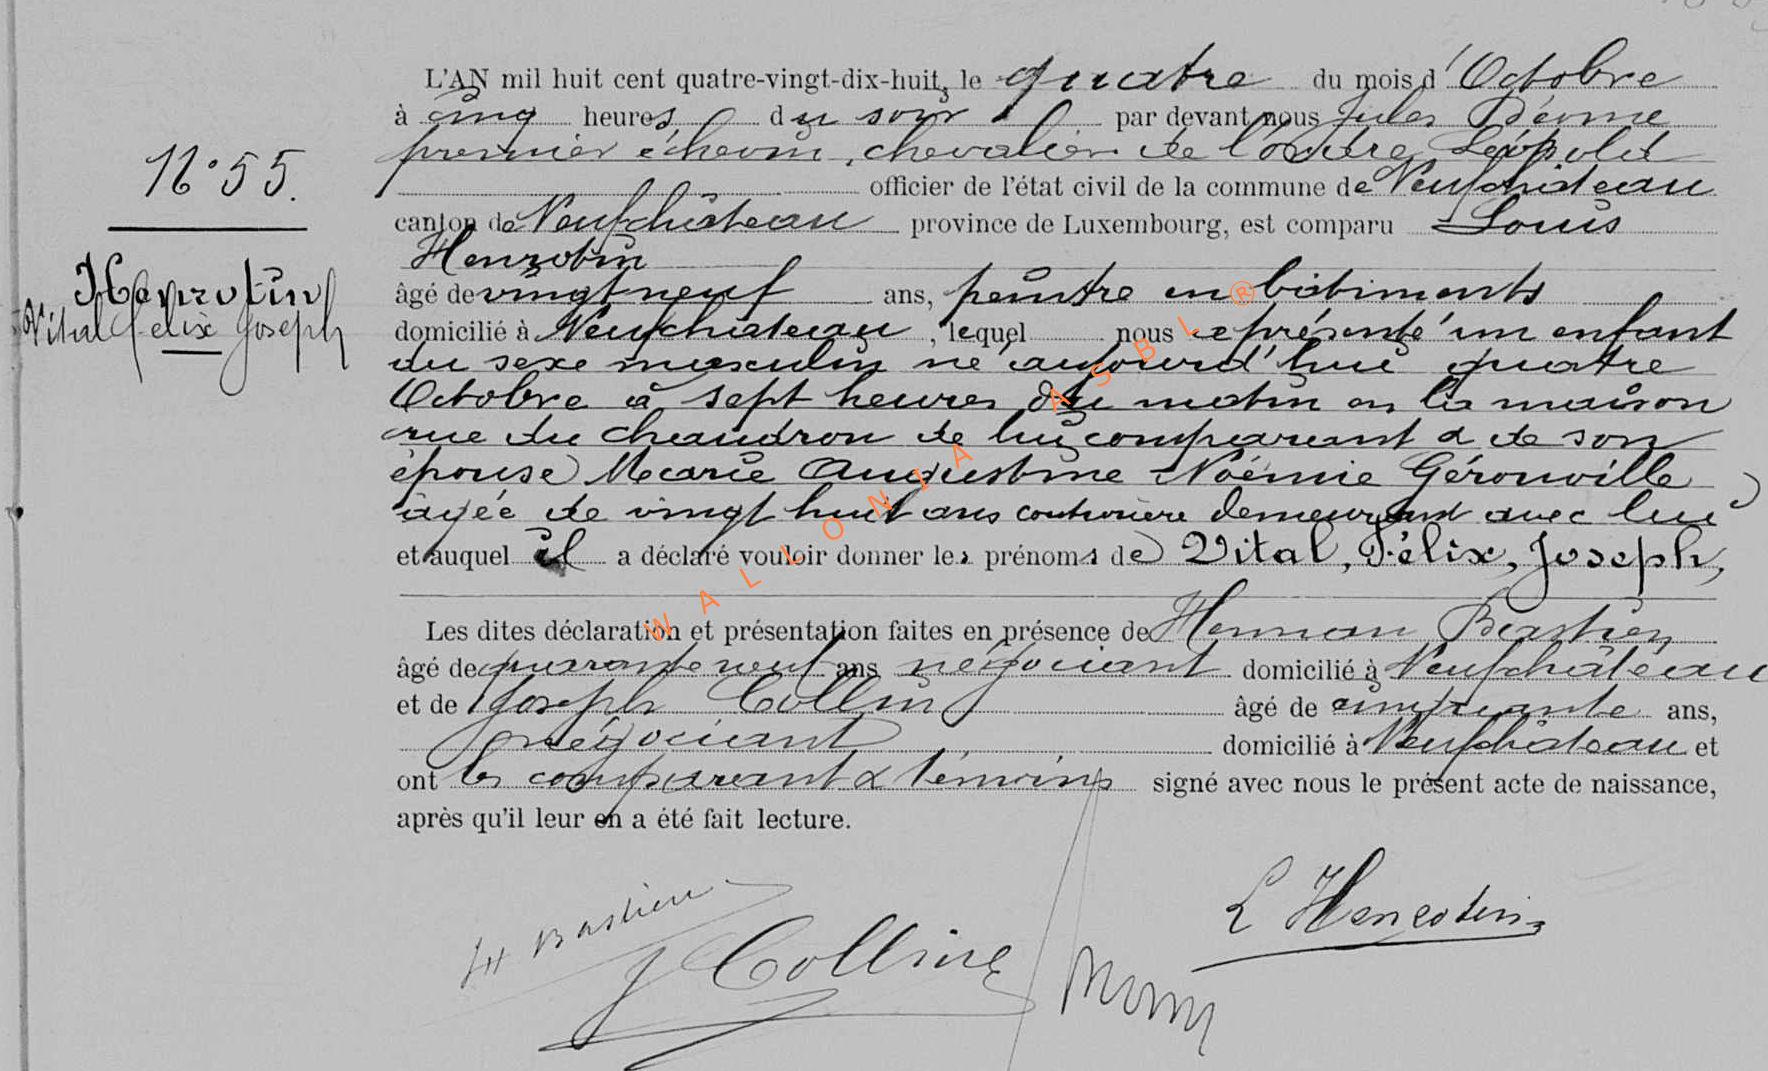 N° 55.
Henrotin
Vital Felix Joseph
L'AN mil huit cent quatre-vingt-dix-huit, le quatre du mois d'Octobre
à cinq heures du soir par devant nous Jules
premier échevin, chevalier de l'Ordre Léopold
officier de l'état civil de la commune de Neufchâteau
canton de Neufchâteau province de Luxembourg, est comparu Louis
Henrotin
âgé de vingt neuf ans, peintre en bâtiments
domicilié à Neufchâteau, lequel nous a présenté un enfant
du sexe masculin né aujourd'hui quatre
Octobre à sept heures du matin en la maison
rue du chaudron de lui comparant & de son
épouse Marie Augustine Noémie Gérouville
âgée de vingt huit ans couturière demeurant avec lui
et auquel il a déclaré vouloir donner les prénoms de Vital, Félix, Joseph,
Les dites déclaration et présentation faites en présence de Herman Bastien
âgé de quarante neuf ans négociant domicilié à Neufchâteau
et de Joseph Collin âgé de cinquante ans,
négociant domicilié à Neufchâteau et
ont les comparant & témoins signé avec nous le présent acte de naissance,
après qu'il leur en a été fait lecture.
L Henrotin
H Bastien
J Collin
WALLONIA ASBL ®